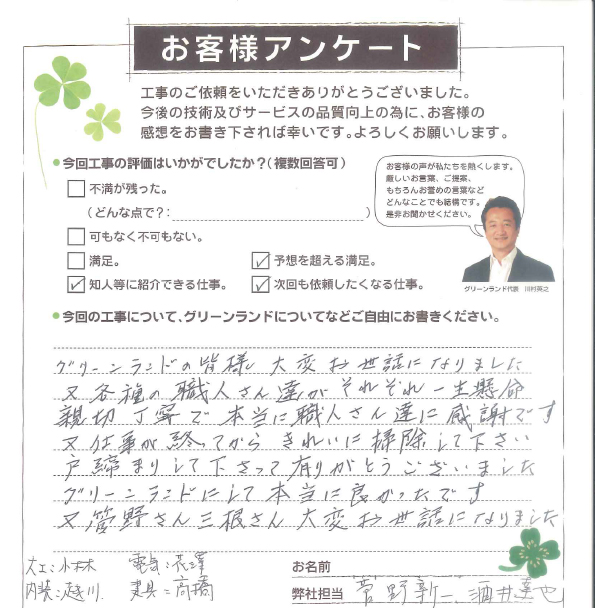 お客様アンケート
工事のご依頼をいただきありがとうございました。
今後の技術及びサービスの品質向上の為に、お客様の
感想をお書き下されば幸いです。よろしくお願いします。
●今回工事の評価はいかがでしたか?(複数回答可)
不満が残った。
(どんな点で?: )
可もなく不可もない。
満足。
予想を超える満足。
知人等に紹介できる仕事。
次回も依頼したくなる仕事。
お客様の声が私たちを熱くします。
厳しいお言葉、ご提案、
もちろんお誉めの言葉など
どんなことでも結構です。
是非お聞かせください。
グリーンランド代表 川村英之
●今回の工事について、グリーンランドについてなどご自由にお書きください。
グリーンランドの皆様 大変お世話になりました
又各種の職人さん達がそれぞれ一生懸命
親切丁寧で本当に職人さん達に感謝です
又仕事が終ってからきれいに掃除して下さい
戸締まりして下さって有りがとうございました
グリーンランドにして本当に良かったです
又菅野さん三根さん大変お世話になりました
大工:小林 電気:花澤
内装:越川 建具:高橋
お名前
弊社担当 菅野新一、酒井達也